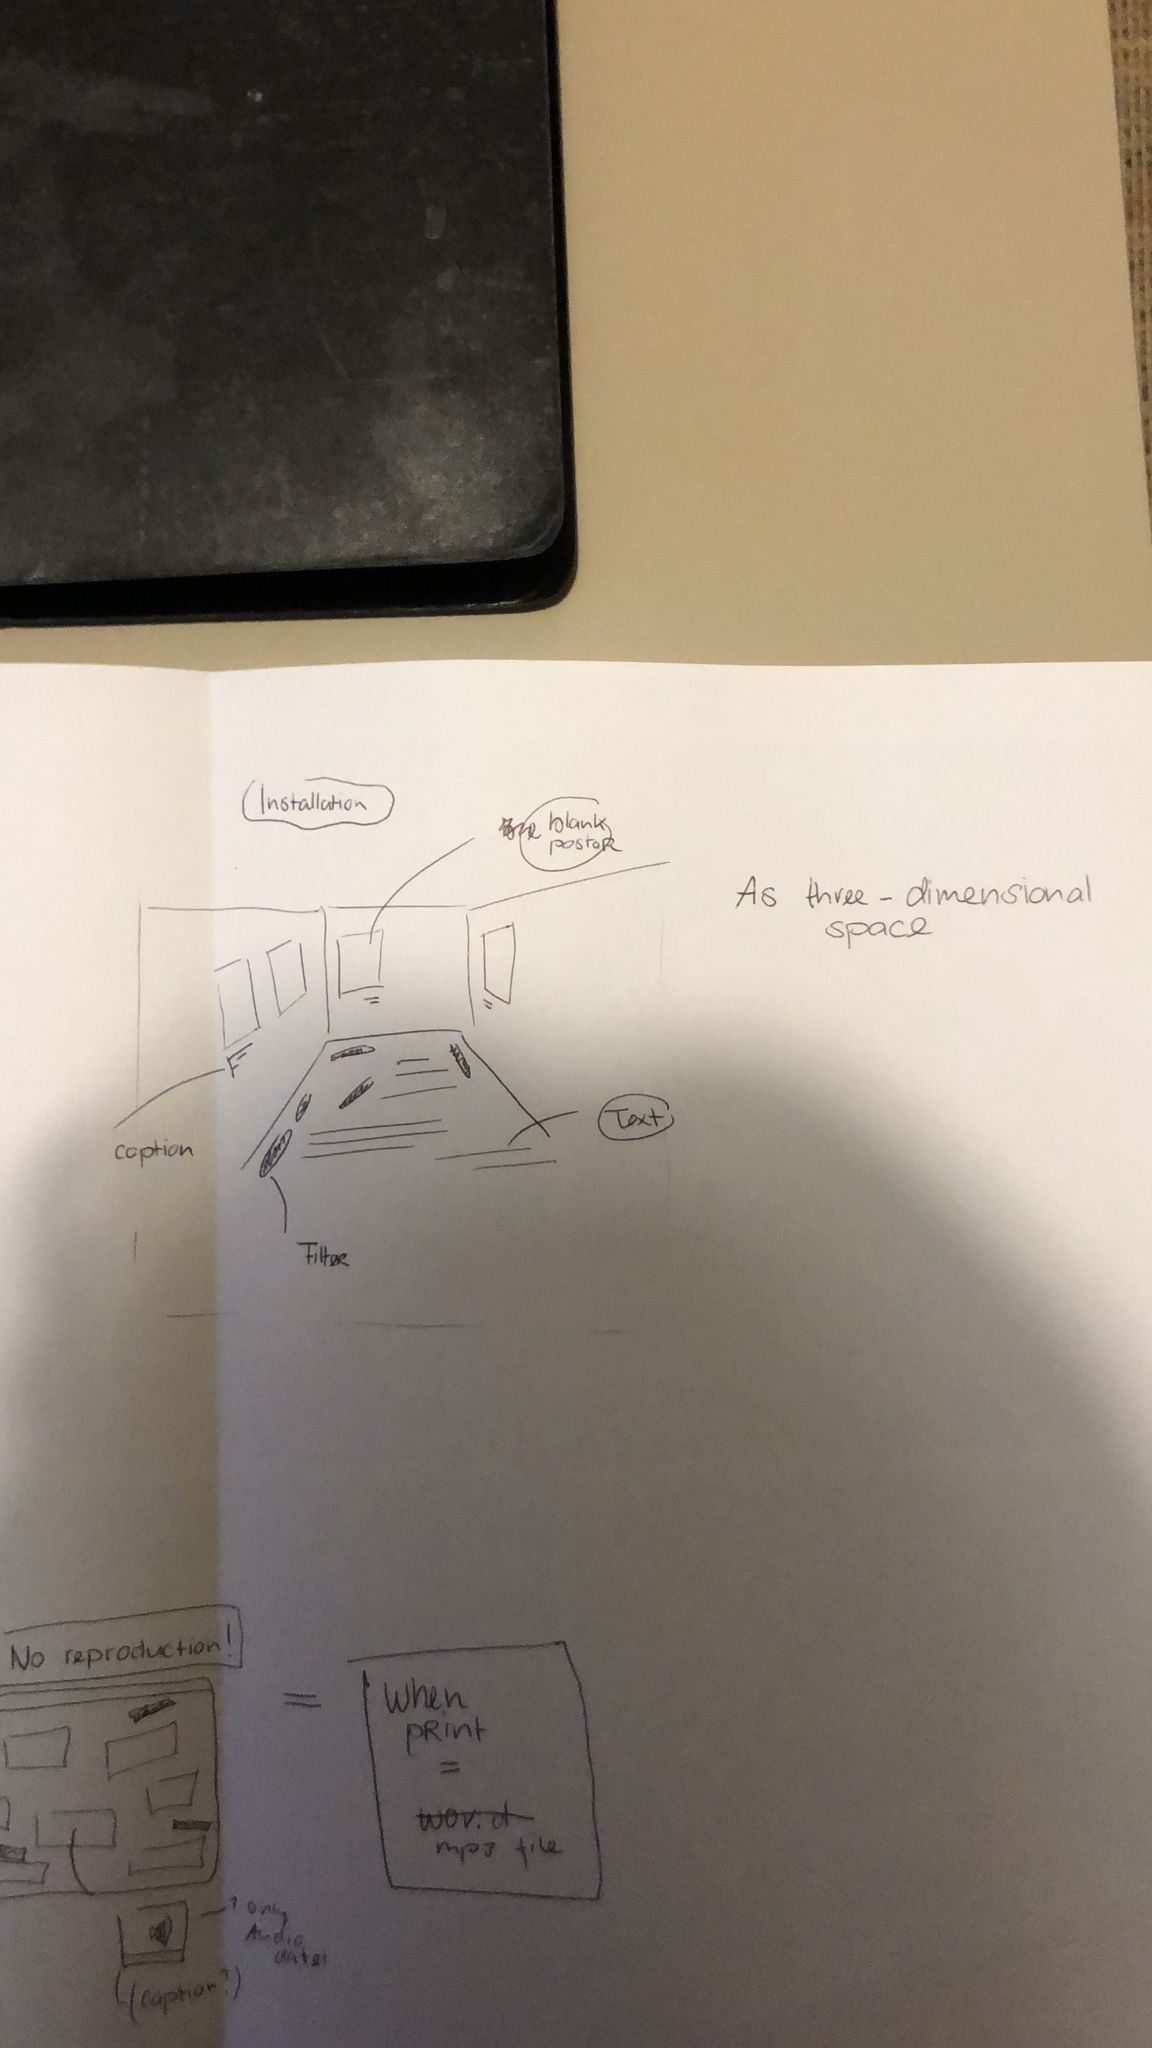 Installation
blank
poster
As three-dimensional
space
caption
Text
Filter
No reproduction!
=
When
print
=
mp3 file
? only
Audio
(caption?)